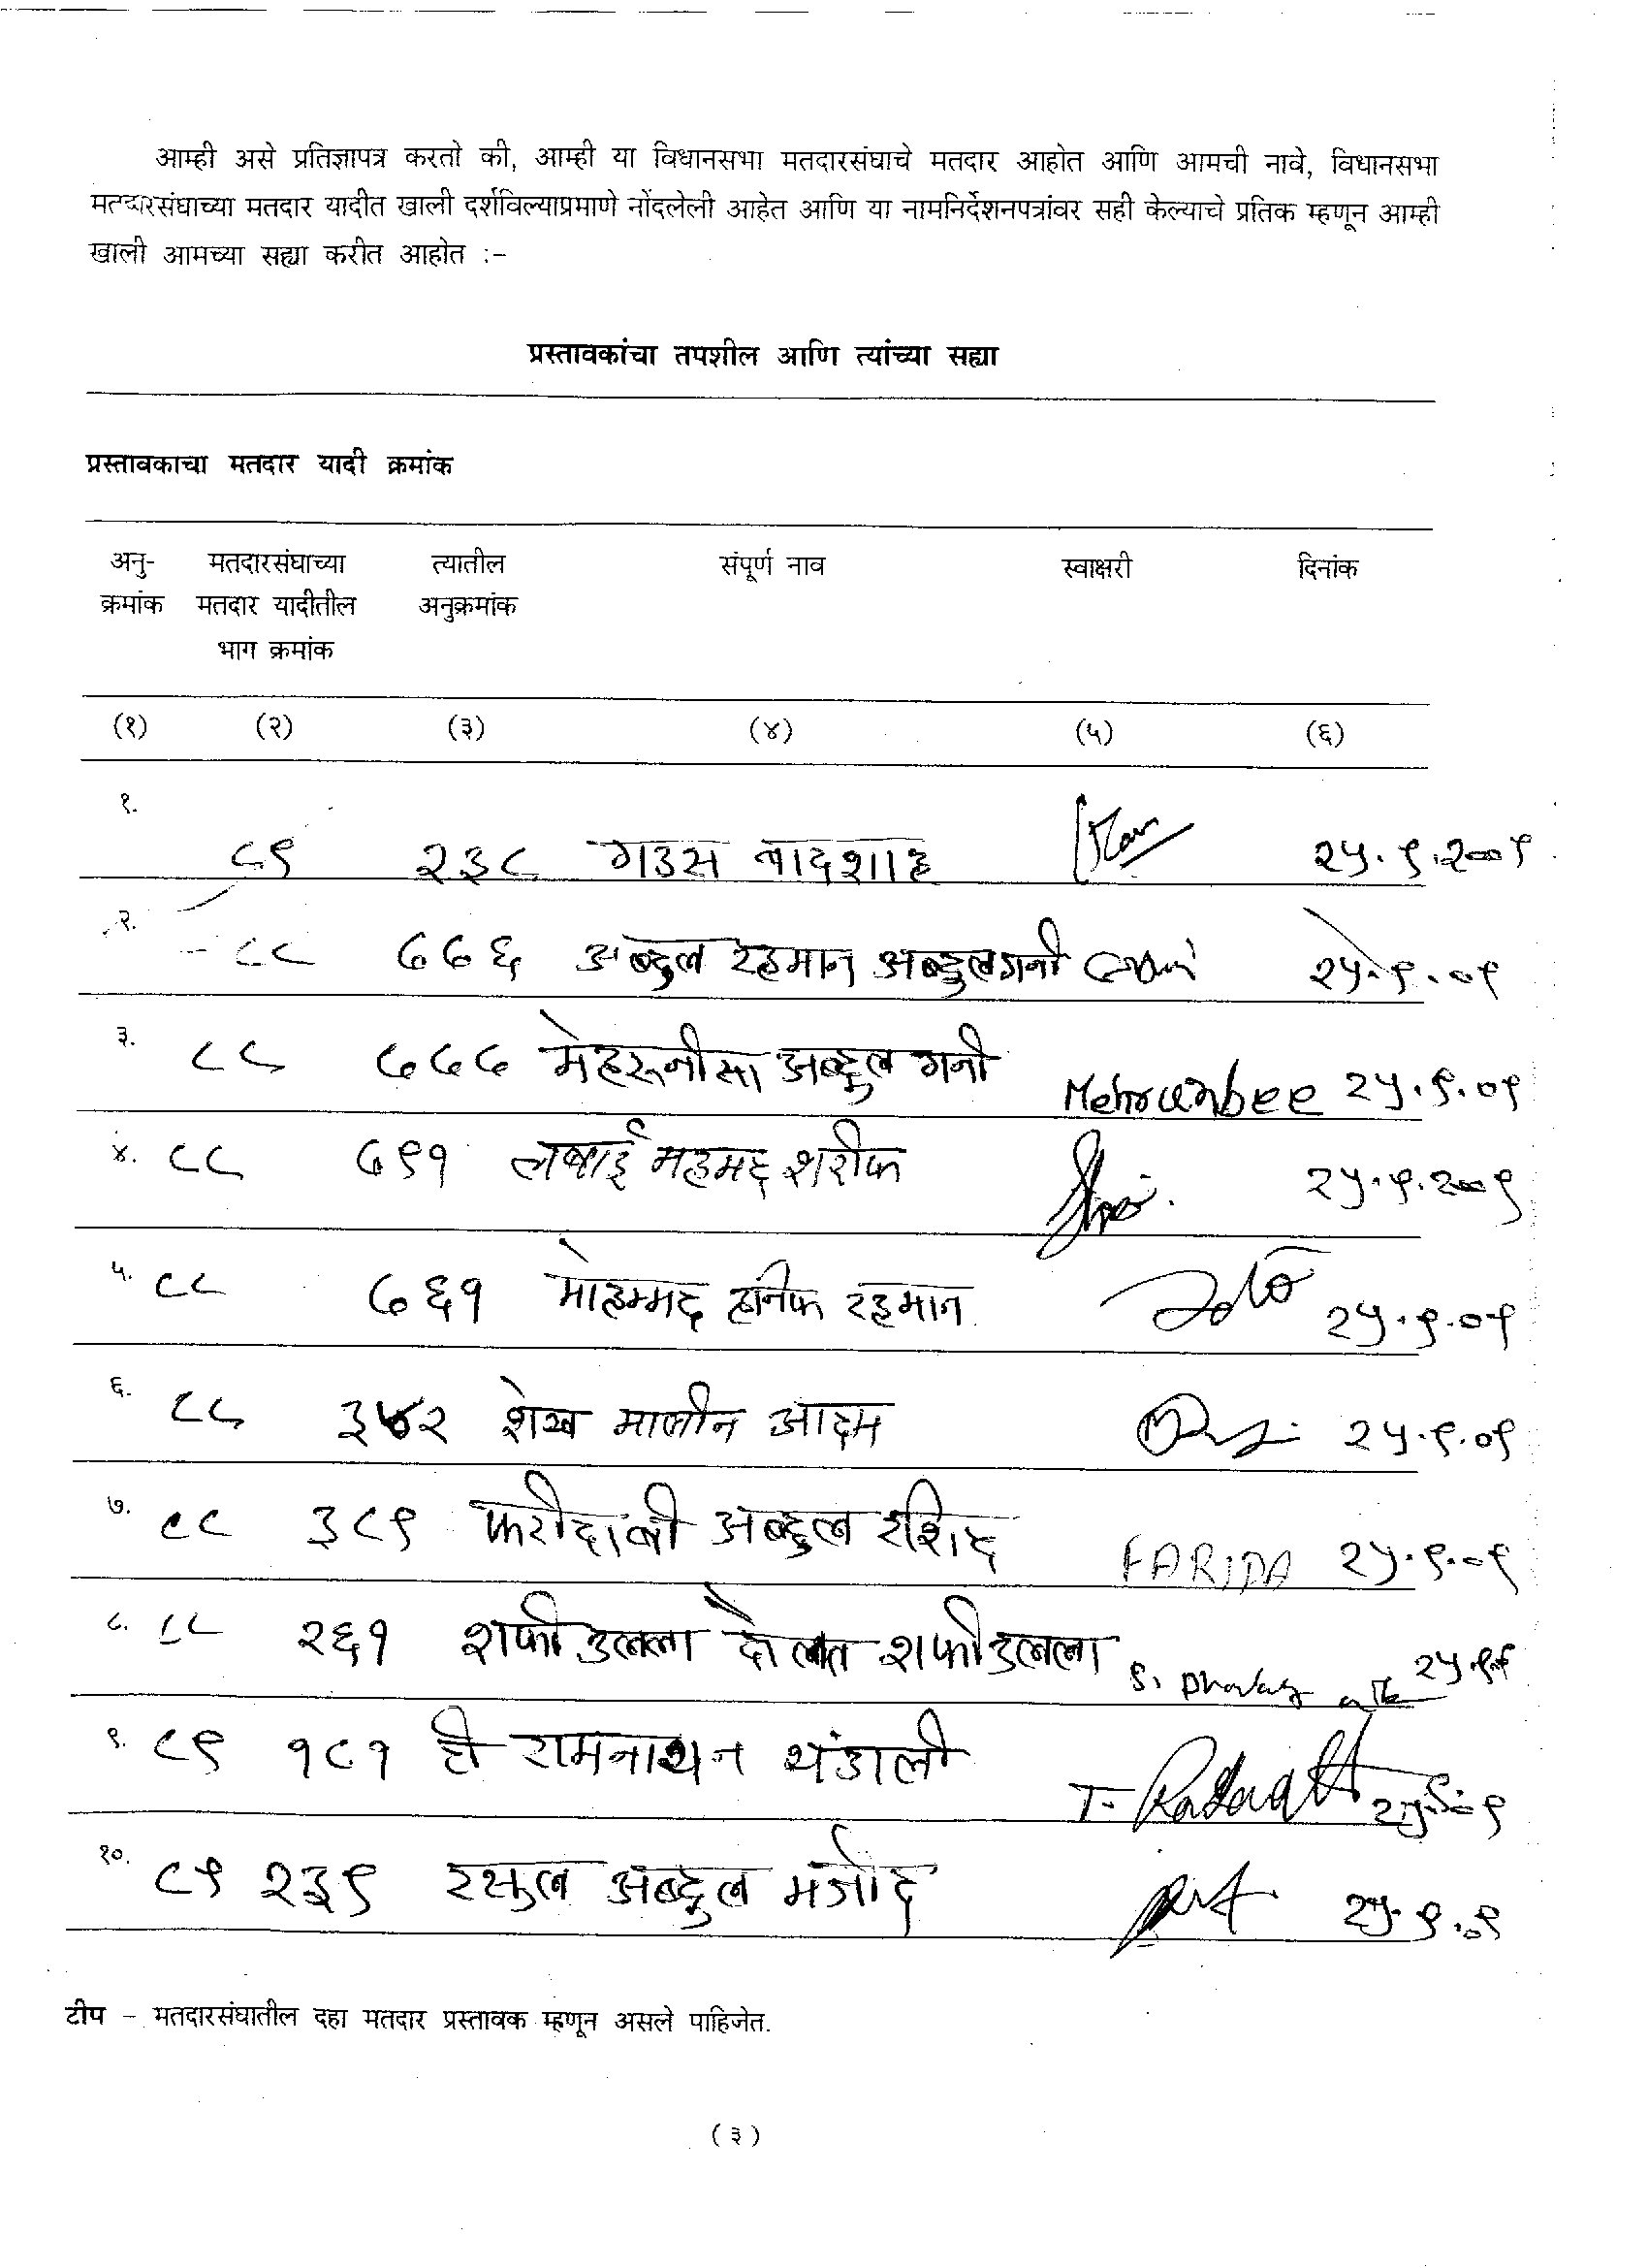 आम्ही असे प्रतिज्ञापत्र करतो की, आम्ही या विधानसभा मतदारसंघाचे मतदार आहोत आणि आमची नावे, विधानसभा
मतदारसंघाच्या मतदार यादीत खाली दर्शविल्याप्रमाणे नोंदलेली आहेत आणि या नामनिर्देशनपत्रांवर सही केल्याचे प्रतिक म्हणून आम्ही
खाली आमच्या सह्या करीत आहोत :-
प्रस्तावकांचा तपशील आणि त्यांच्या सह्या
प्रस्तावकाचा मतदार यादी क्रमांक
अनु- मतदारसंघाच्या त्यातील संपूर्ण नाव स्वाक्षरी दिनांक
क्रमांक मतदार यादीतील अनुक्रमांक
भाग क्रमांक
(१) (२) (३) (४) (५) (६)
१. ८९ २३८ गउस बादशाह २५.९.२००९
२. ८८ ७७६ अब्दुल रहमान अब्दुल गनी २५.९.०९
३. ८८ ७७७ मेहरूनीसा अब्दुल गनी Mehrunbee २५.९.०९
४. ८८ ७९१ लब्बाई महमद शरीफ २५.९.२००९
५. ८८ ७६१ मोहम्मद हनिफ रहमान २५.९.०९
६. ८८ ३४२ शेख आदम २५.९.०९
७. ८८ ३८९ फरीदाबी अब्दुल रशिद FARIDA २५.९.०९
८. ८८ २६१ शफीउल्ला दौलत शफीउल्ला २५.९.९
९. ८९ १८१ टी रामनाथन थंडाली २५.९.०९
१०. ८९ २३९ रसुल अब्दुल मजीद २५.९.०९
टीप - मतदारसंघातील दहा मतदार प्रस्तावक म्हणून असले पाहिजेत.
(३)